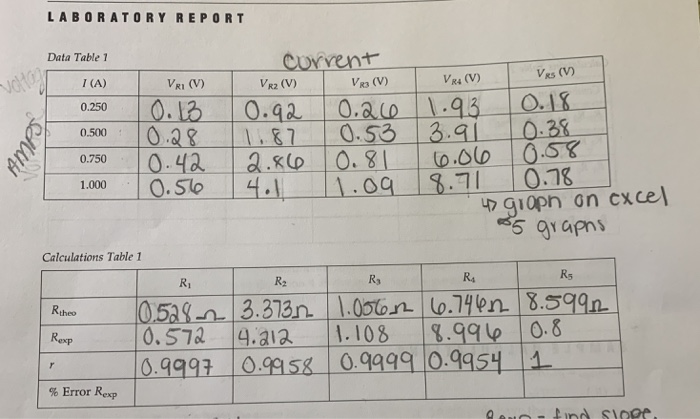 LABORATORY REPORT
Data Table 1
current
I (A) VR1 (V) VR2 (V) VR3 (V) VR4 (V) VR5 (V)
AMPS
0.250 0.13 0.92 0.26 1.93 0.18
0.500 0.28 1.87 0.53 3.91 0.38
0.750 0.42 2.86 0.81 6.06 0.58
1.000 0.56 4.1 1.09 8.71 0.78
↳ graph on excel
5 graphs
Calculations Table 1
R1 R2 R3 R4 R5
Rtheo 0.528Ω 3.373Ω 1.056Ω 6.746Ω 8.599Ω
Rexp 0.572 4.212 1.108 8.996 0.8
r 0.9997 0.9958 0.9999 0.9954 1
% Error Rexp
- find slope.